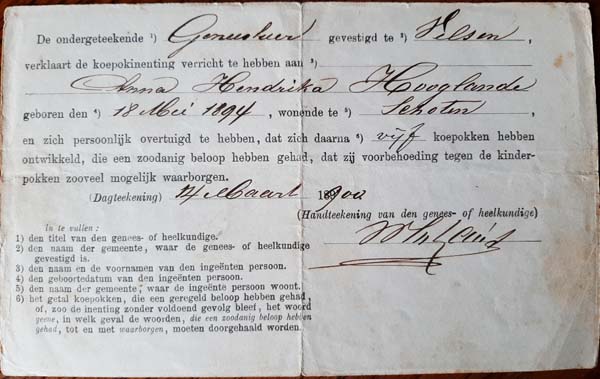 De ondergeteekende ¹) Geneesheer gevestigd te ²) Velsen,
verklaart de koepokinenting verricht te hebben aan ³)
Anna Hendrika Hooglande
geboren den ⁴) 18 Mei 1894, wonende te ⁵) Schoten,
en zich persoonlijk overtuigd te hebben, dat zich daarna ⁶) vijf koepokken hebben
ontwikkeld, die een zoodanig beloop hebben gehad, dat zij voorbehoeding tegen de kinder-
pokken zooveel mogelijk waarborgen.
(Dagteekening) 14 Maart 1900
(Handteekening van den genees- of heelkundige)
In te vullen:
1) den titel van den genees- of heelkundige.
2) den naam der gemeente, waar de genees- of heelkundige
gevestigd is.
3) den naam en de voornamen van den ingeënten persoon.
4) den geboortedatum van den ingeënten persoon.
5) den naam der gemeente, waar de ingeënte persoon woont.
6) het getal koepokken, die een geregeld beloop hebben gehad,
of, zoo de inenting zonder voldoend gevolg bleef, het woord
geene, in welk geval de woorden, die een zoodanig beloop hebben
gehad, tot en met waarborgen, moeten doorgehaald worden.